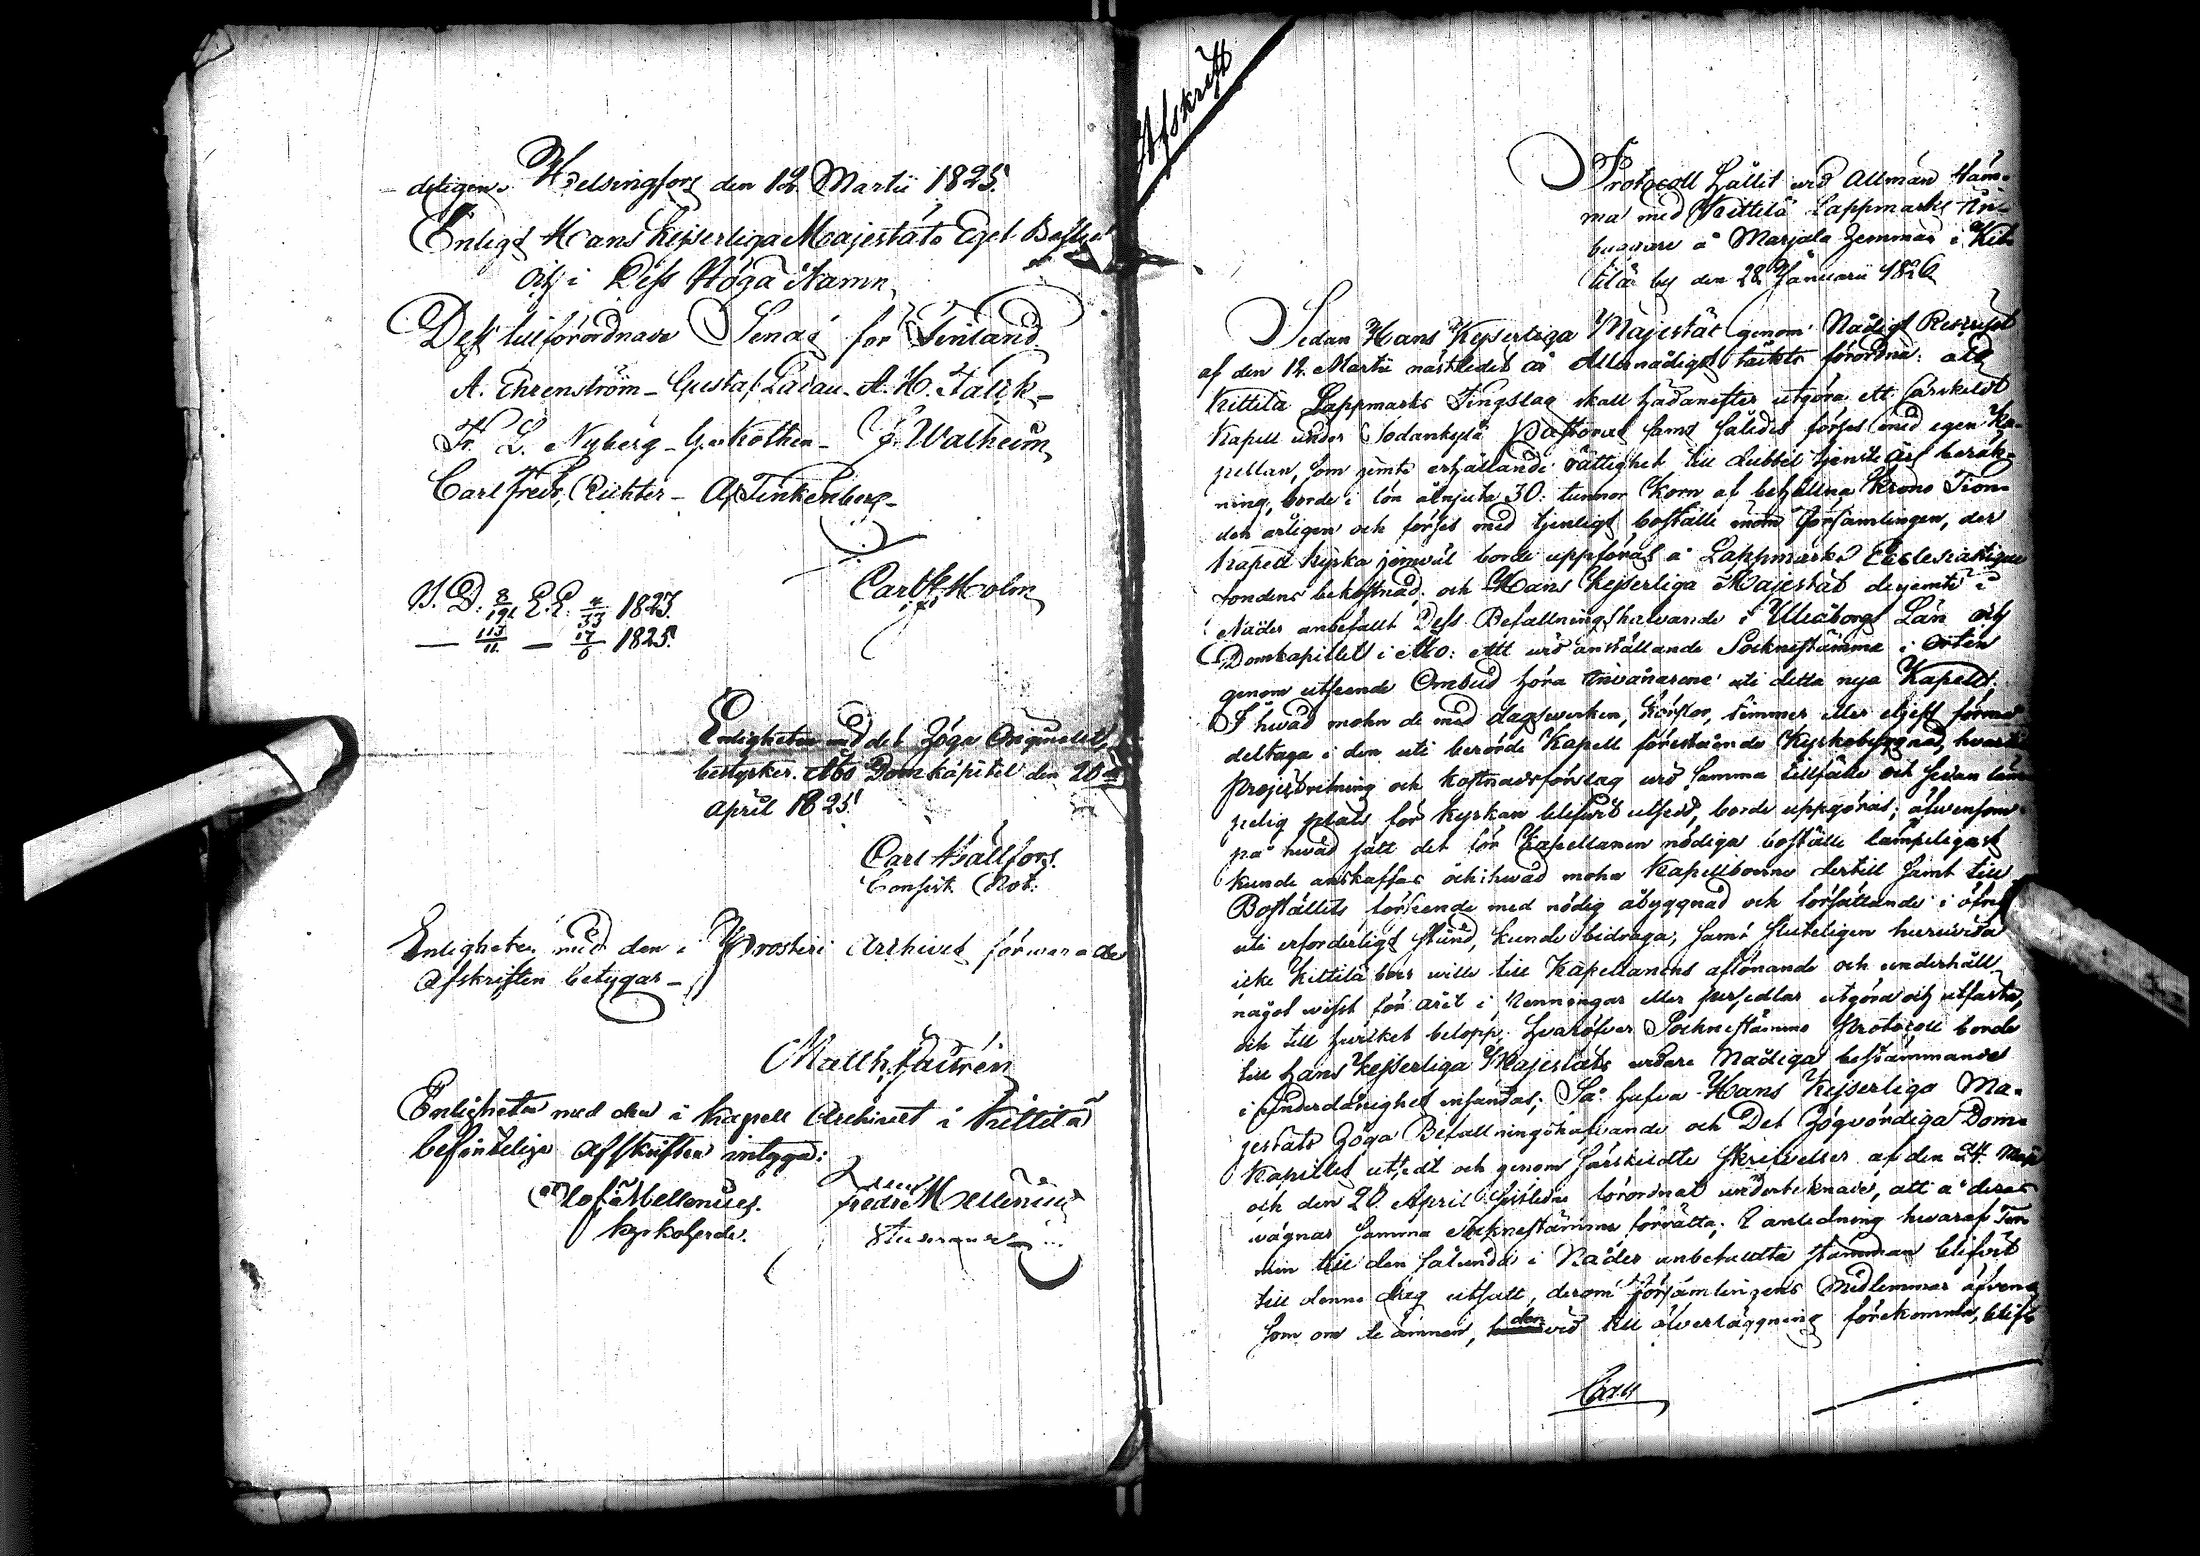 deligen. Helsingfors den 12 Martii 1825.
Enligt Hans Kejserliga Majestäts Eget Beslut
och i Dess Höga Namn
Dess tillförordnade Senat för Finland
A. Ehrenström - Gustaf Ladau - A. H. Falck -
Fr. L. Nyberg - G. v. Kothen - J. Walheim
Carl Fredr. Richter - Af Tinkenberg -
Carl Holm
B. D. 8/191 E. E. 4/33 1823.
— 113/11 — 17/6 1825.
Enligheten med det höga Originalet,
bestyrker. Åbo Domkapitel den 20
April 1825.
Carl Hällfors.
Consist. Not.
Enligheten med den i Prosteri Archivet förvarade
afskriften betygar -
Matth.
Enligheten med den i Kapell Archivet i Kittilä
befinteliga Afskriften intyga:
Olof Mellenius. Fredric Mellenius
Kyrkoherde.
Afskrift
Protocoll hållit vid Allmän Stäm-
ma med Kittilä Lappmarks Inn-
byggare å Marjala hemman i Kit-
tilä by den 28 Januarii 1826
Sedan Hans Kejserliga Majestät genom Nådigt Rescript
af den 12. Martii nästledit år Allernådigst täckts förordna: att
Kittilä Lappmarks Tingslag skall hädanefter utgöra ett särskildt
Kapell under Sodankylä Pastorat samt således förses med egen Ka-
pellan, som jemte erhållande rättighet till dubbel tjenste års beräk-
ning, borde i lön åtnjuta 30. tunnor Korn af behållna Krono Tion-
den årligen och förses med tjenligt boställe inom Församlingen, der
Kapell Kyrka jemväl borde uppföras å Lappmarks Ecclesiastique
fondens bekostnad; och Hans Kejserliga Majestät derjemte i
Nåder anbefallt Dess Befallningshafvande i Uleåborgs Län och
Domkapitlet i Åbo: Att vid anställande Socknestämma i orten
genom utseende Ombud höra Invånarene uti detta nya Kapell
I hvad mohn de med dagsverken, körslor, timmer eller eljest förmå
deltaga i den uti berörde Kapell förestående Kyrkobyggnad, hvartill
Projectritning och kostnadsförslag vid samma tillfälle och sedan läm-
pelig plats för Kyrkan blifvit utsedd, borde uppgöras; äfvensom
på hvad sätt det för Kapellanen nödiga boställe lämpeligast
kunde anskaffas och i hvad mohn Kapelboerne dertill samt till
Boställets förseende med nödig åbyggnad och försättande i öfrigt
uti erforderligt stånd, kunde bidraga, samt sluteligen huruvida
icke Kittiläboer ville till Kapellanens aflönande och underhåll
något visst för året i Penningar eller persedlar utgöra och utfästa,
och till hvilket belopp; hvaröfver Sockenstämmo Protocoll borde
till Hans Kejserliga Majestäts vidare Nådiga bestämmande
i Underdånighet insändas; Så hafva Hans Kejserliga Ma-
jestäts Höga Befallningshafvande och Det Högvördiga Dom-
Kapitlet utsedt och genom särskildte skrivelser af den 24. Maji
och den 20 April sistledne förordnat undertecknade, att å deras
vägnar samma Sockenstämma förrätta; I anledning hvaraf Ter-
min till den sålunda i Nåder anbefallta stämman blifvit
till denne dag utsatt, derom Församlingens Medlemmar äfven-
som om de ämnen, dervid till öfverläggning förekomma, blifvit